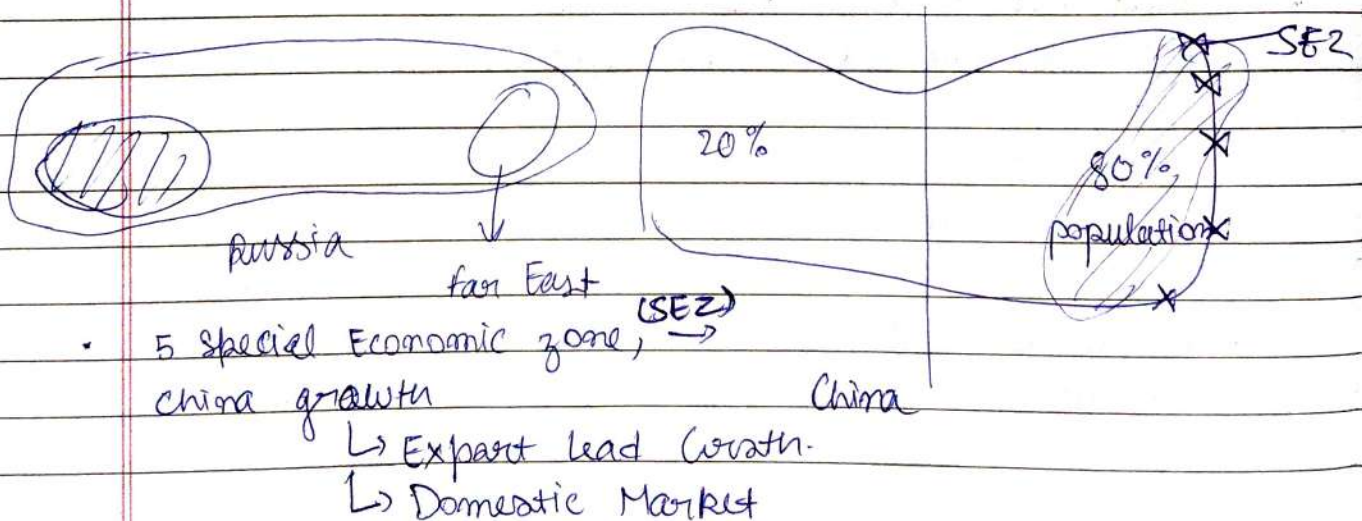 SEZ
20%
80%
population
Russia
far East
• 5 special Economic zone, (SEZ) →
china growth
China
↳ Export lead Growth.
↳ Domestic Market